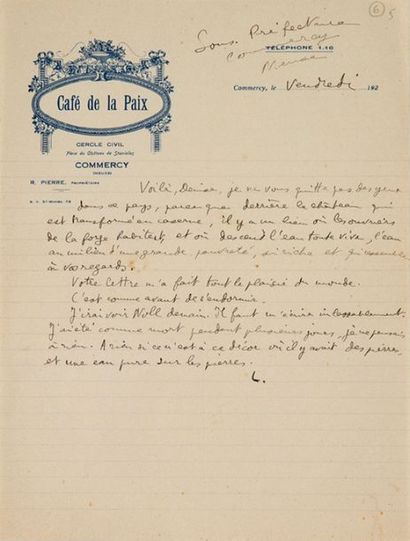 6 5
Sous Préfecture
Commercy
Meuse
TÉLÉPHONE 1.16
Café de la Paix
Commercy, le Vendredi 192
CERCLE CIVIL
Place du Château de Stanislas
COMMERCY
(MEUSE)
R. PIERRE, PROPRIÉTAIRE
Voilà, Denise, je ne vous quitte pas des yeux
dans ce pays, parce que derrière le château qui
est transformé en caserne, il y a un lieu où les ouvriers
de la forge habitent, et où descend l'eau toute vive, l'eau
au milieu d'une grande pauvreté, si riche et qui ressemble
à vos regards.
Votre lettre m'a fait tout le plaisir du monde.
C'est comme avant de s'endormir.
J'irai voir Noll demain. Il faut m'écrire inlassablement.
J'ai été comme mort pendant plusieurs jours, je ne pensais
à rien. A rien si ce n'est à ce décor où il y avait des pierres
et une eau pure sur les pierres.
L.